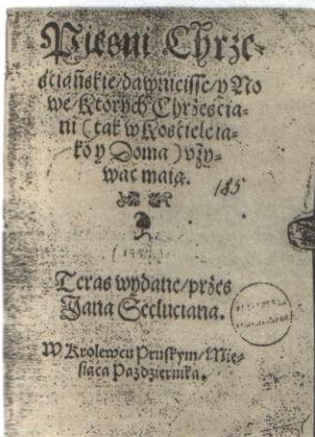 Piesni Chrze-
śćiańskie/dawnieisse/y No
we/Ktorych Chrześcia-
ni (tak w Kościele ia-
ko y Doma) vży-
wać maią.
185
Teras wydane/przes
Jana Secluciana.
W Krolewcu Pruskym/Mie-
siąca Października.